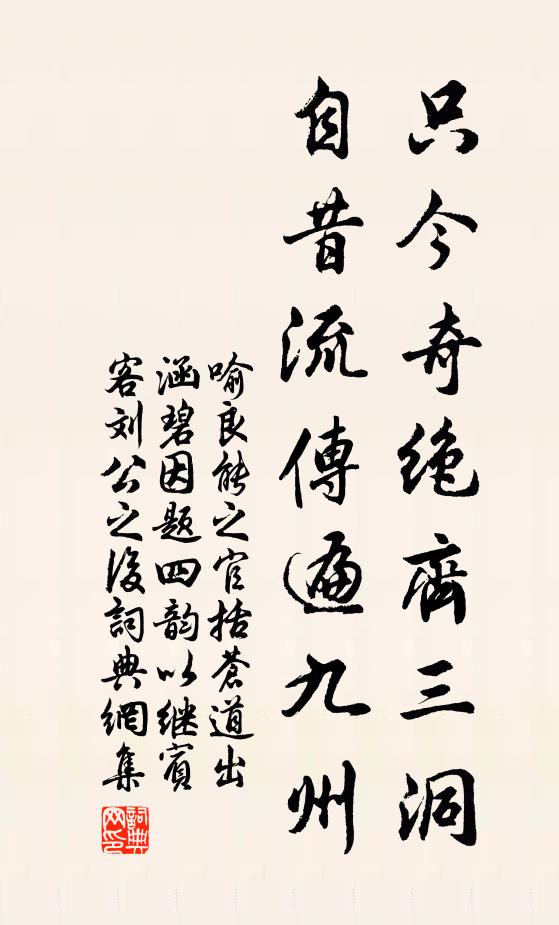 只今奇绝齊三洞
自昔流傳遍九州
喻良能之官括蒼道出
涵碧因题四韵以继賓
客刘公之後詞典網集
詞典网印